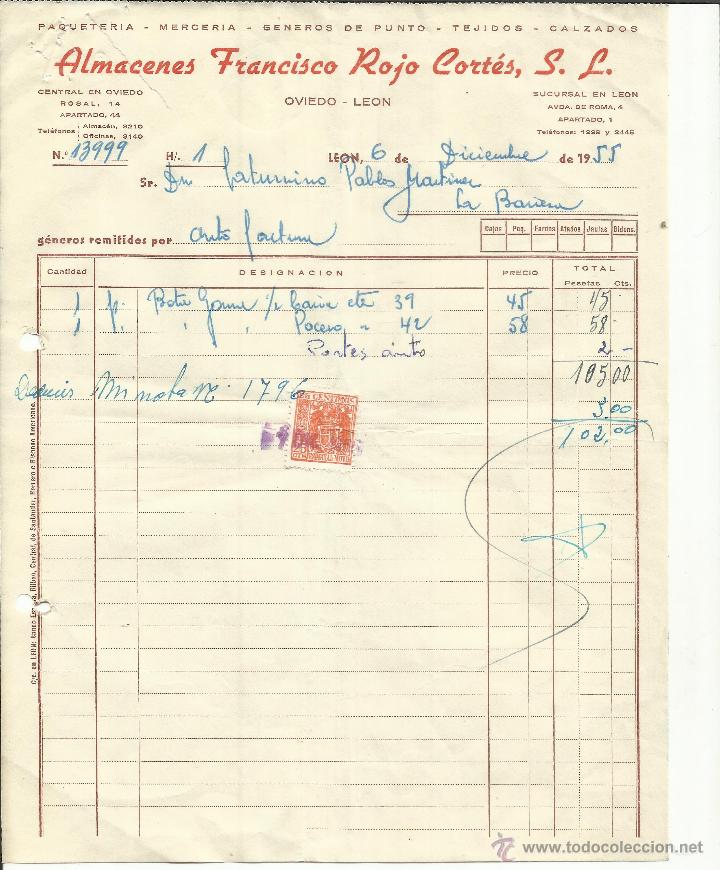 PAQUETERIA - MERCERIA - GENEROS DE PUNTO - TEJIDOS - CALZADOS
Almacenes Francisco Rojo Cortés, S. L.
CENTRAL EN OVIEDO
ROSAL, 14
APARTADO, 44
Teléfonos Almacén, 3210
Oficinas, 3140
OVIEDO - LEON
SUCURSAL EN LEON
AVDA. DE ROMA, 4
APARTADO, 1
Teléfonos: y 2445
N.º 13999 H/. 1 LEON, 6 de Diciembre de 1955
Sr. Dn Saturnino Pablos Martinez
La Bañeza
géneros remitidos por Auto
Cajas Paq. Fardos Atados Jaulas Bidons.
Cantidad DESIGNACION PRECIO TOTAL
Pesetas Cts.
1 p. Bota Goma 39 45 45-
1 p. " " " Pocero " 42 58 58-
Portes auto 2-
105 00
M nota nº. 1796
3.00
102.00
todocoleccion.net